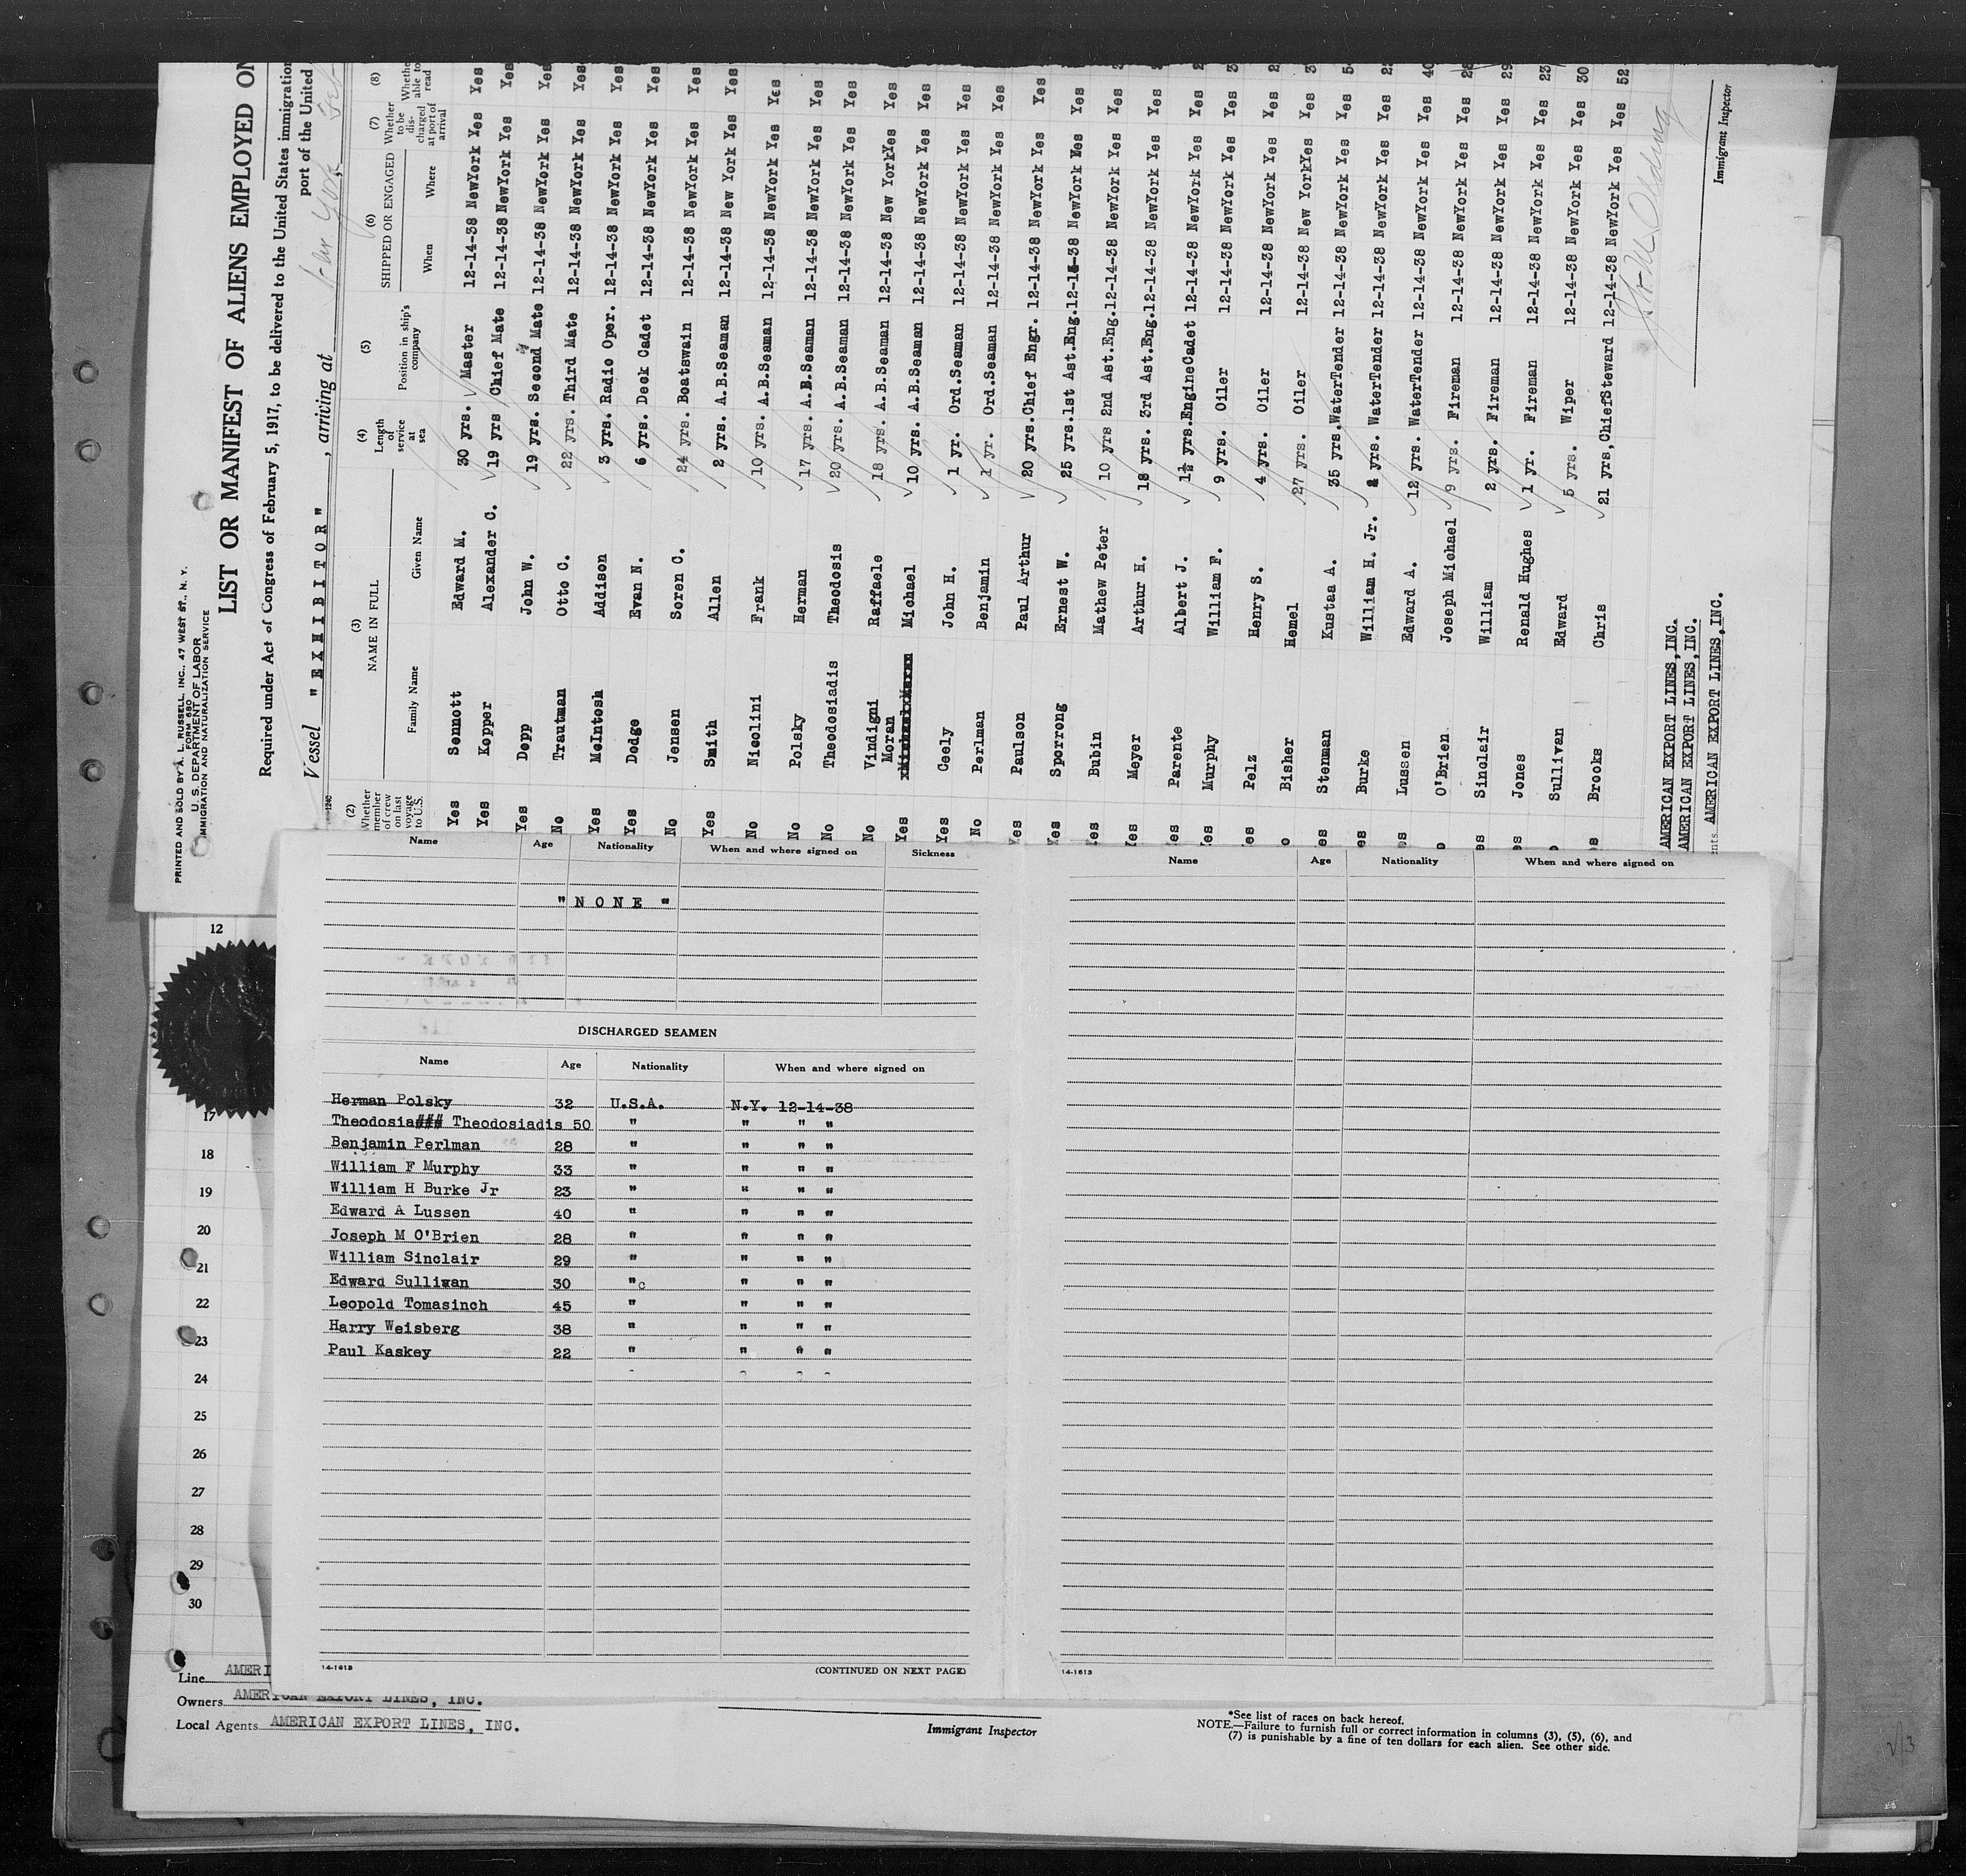 PRINTED AND SOLD BY A. L. RUSSELL, INC., 47 WEST ST., N. Y.
FORM 680
U. S. DEPARTMENT OF LABOR
IMMIGRATION AND NATURALIZATION SERVICE
LIST OR MANIFEST OF ALIENS EMPLOYED ON
Required under Act of Congress of February 5, 1917, to be delivered to the United States immigration
port of the United
Vessel "EXHIBITOR", arriving at New York
(2) (3) (4) (5) (6) (7) (8)
Whether member of crew on last voyage to U.S. NAME IN FULL Length of service at sea Position in ship's company SHIPPED OR ENGAGED Whether to be discharged at port of arrival Whether able to read
Family Name Given Name When Where
Yes Sennott Edward M. 30 yrs. Master 12-14-38 NewYork Yes Yes
Yes Kopper Alexander C. 19 yrs Chief Mate 12-14-38 NewYork Yes Yes
Yes Depp John W. 19 yrs. Second Mate 12-14-38 NewYork Yes Yes
No Trautman Otto C. 22 yrs. Third Mate 12-14-38 NewYork Yes Yes
Yes McIntosh Addison 3 yrs. Radio Oper. 12-14-38 NewYork Yes Yes
Yes Dodge Evan N. 6 yrs. Deck Cadet 12-14-38 NewYork Yes Yes
No Jensen Soren C. 24 yrs. Boatswain 12-14-38 NewYork Yes Yes
Yes Smith Allen 2 yrs. A.B.Seaman 12-14-38 New York Yes Yes
No Nicolini Frank 10 yrs. A.B.Seaman 12-14-38 NewYork Yes Yes
No Polsky Herman 17 yrs. A.B.Seaman 12-14-38 NewYork Yes Yes
No Theodosiadis Theodosis 20 yrs. A.B.Seaman 12-14-38 NewYork Yes Yes
No Vindigni Raffaele 18 yrs. A.B.Seaman 12-14-38 New YorkYes Yes
Yes Moran Michael 10 yrs. A.B.Seaman 12-14-38 NewYork Yes Yes
Yes Ceely John H. 1 yr. Ord.Seaman 12-14-38 NewYork Yes Yes
No Perlman Benjamin 1 yr. Ord.Seaman 12-14-38 NewYork Yes Yes
Yes Paulson Paul Arthur 20 yrs. Chief Engr. 12-14-38 NewYork Yes Yes
Yes Sporrong Ernest W. 25 yrs. 1st Ast.Eng. 12-14-38 NewYork Yes Yes
Yes Bubin Mathew Peter 10 yrs 2nd Ast.Eng. 12-14-38 NewYork Yes Yes
Yes Meyer Arthur H. 18 yrs. 3rd Ast.Eng. 12-14-38 NewYork Yes Yes
Yes Parente Albert J. 1½ yrs. EngineCadet 12-14-38 NewYork Yes Yes
Yes Murphy William F. 9 yrs. Oiler 12-14-38 NewYork Yes Yes
Pelz Henry S. 4 yrs. Oiler 12-14-38 NewYork Yes Yes
Bisher Hemel 27 yrs. Oiler 12-14-38 New YorkYes Yes
Stenman Kustaa A. 35 yrs. WaterTender 12-14-38 NewYork Yes Yes
Burke William H. Jr. yrs. WaterTender 12-14-38 NewYork Yes Yes
Lussen Edward A. 12 yrs. WaterTender 12-14-38 NewYork Yes Yes 40
O'Brien Joseph Michael 9 yrs. Fireman 12-14-38 NewYork Yes Yes 28
Sinclair William 2 yrs. Fireman 12-14-38 NewYork Yes Yes 29
Jones Renald Hughes 1 yr. Fireman 12-14-38 NewYork Yes Yes 23
Sullivan Edward 5 yrs. Wiper 12-14-38 NewYork Yes Yes 30
Brooks Chris 21 yrs, ChiefSteward 12-14-38 NewYork Yes Yes 52
AMERICAN EXPORT LINES,INC.
AMERICAN EXPORT LINES,INC.
AMERICAN EXPORT LINES,INC.
Immigrant Inspector
Name Age Nationality When and where signed on Sickness
"NONE"
DISCHARGED SEAMEN
Name Age Nationality When and where signed on
Herman Polsky 32 U.S.A. N.Y. 12-14-38
Theodosia### Theodosiadis 50 " " " "
Benjamin Perlman 28 " " " "
William F Murphy 33 " " " "
William H Burke Jr 23 " " " "
Edward A Lussen 40 " " " "
Joseph M O'Brien 28 " " " "
William Sinclair 29 " " " "
Edward Sullivan 30 "c " " "
Leopold Tomasinch 45 " " " "
Harry Weisberg 38 " " " "
Paul Kaskey 22 " " " "
14-1613
(CONTINUED ON NEXT PAGE)
Name Age Nationality When and where signed on
14-1613
12
17
18
19
20
21
22
23
24
25
26
27
28
29
30
Line AMERI
Owners AMERICAN EXPORT LINES, INC.
Local Agents AMERICAN EXPORT LINES, INC.
Immigrant Inspector
*See list of races on back hereof.
NOTE.—Failure to furnish full or correct information in columns (3), (5), (6), and
(7) is punishable by a fine of ten dollars for each alien. See other side.